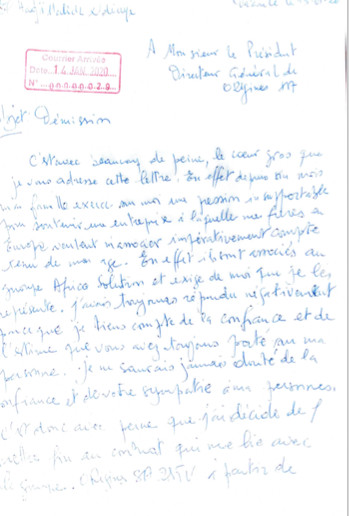 Courrier Arrivée
Date 14 JAN. 2020
N° 0000002
A Monsieur le Président
Directeur Général de
Objet Démission
C'est avec beaucoup de peine, le cœur gros que
je vous adresse cette lettre. En effet depuis un mois
ma famille exerce sur moi une pression insupportable
pour soutenir une entreprise à laquelle mes frères
Europe veulent m'associer impérativement compte
tenu de mon age. En effet ils sont associés au
groupe Africa Solution et exige de moi que je les
représente. J'ai toujours répondu négativement
parce que je tiens compte de la confiance et de
l'estime que vous avez toujours porté sur ma
personne. Je ne saurais jamais douté de la
confiance et de votre sympathie à ma personne.
C'est donc avec peine que j'ai décidé de
mettre fin au contrat qui me lie avec
le groupe. à partir de